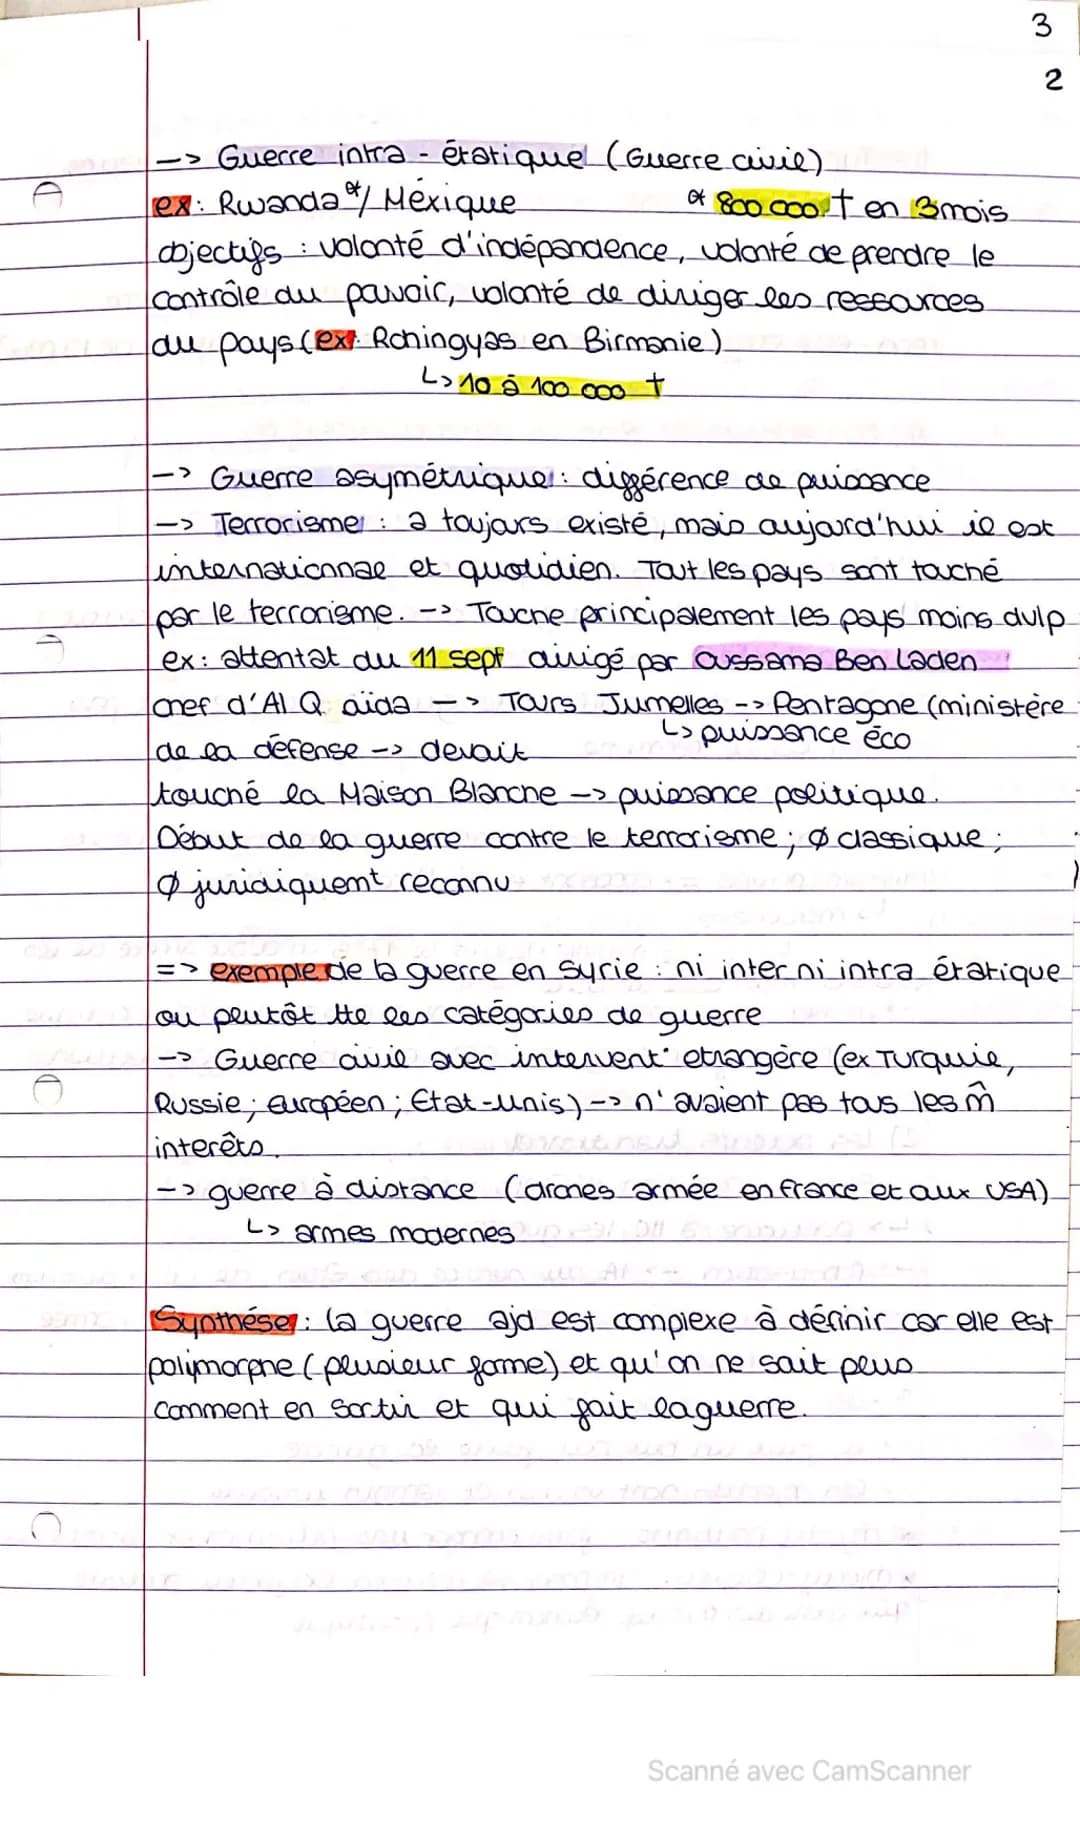 3
2
-> Guerre intra-étatique (Guerre civile)
ex: Rwanda*/ Méxique * 800 000 † en 3 mois
objectifs : volonté d'indépendance, volonté de prendre le
contrôle du pouvoir, volonté de diriger les ressources
du pays (ex: Rohingyas en Birmanie)
↳ 10 à 100 000 †
-> Guerre asymétrique : différence de puissance
-> Terrorisme : a toujours existé, mais aujourd'hui il est
internationnal et quotidien. Tout les pays sont touché
par le terrorisme. -> Touche principalement les pays moins dvlp
ex: attentat du 11 sept dirigé par Oussama Ben Laden
chef d'Al Qaïda -> Tours Jumelles -> Pentagone (ministère
↳ puissance éco
de la défense -> devait
touché la Maison Blanche -> puissance politique.
Début de la guerre contre le terrorisme ; Ø classique ;
Ø juridiquent reconnu
=> exemple de la guerre en Syrie : ni inter ni intra étatique
ou plutôt tte les catégories de guerre
-> Guerre civile avec intervent° etrangère (ex Turquie,
Russie ; Européen ; Etat-Unis) -> n'avaient pas tous les m̂
interêts.
-> guerre à distance (drones armée en France et aux USA)
↳ armes modernes
Synthése : la guerre ajd est complexe à définir car elle est
polymorphe (plusieur forme) et qu'on ne sait plus
comment en sortir et qui fait la guerre.
Scanné avec CamScanner